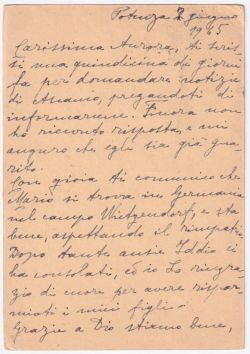 Potenza 2 giugno
1945
Carissima Aurora, Ti scris
si una quindicina di giorni
fa per domandare notizie
di Ascanio, pregandoti di
informarmene. Finora non
ho ricevuto risposta, e mi
auguro che egli sia già gua
rito.
Con gioia ti comunico che
Mario si trova in Germania
nel campo Wietzendorf, e sta
bene, aspettando il rimpatrio.
Dopo tante ansie Iddio ci
ha consolati, ed io Lo ringra
zio di cuore per avere rispar
miati i miei figli.
Grazie a Dio stiamo bene,